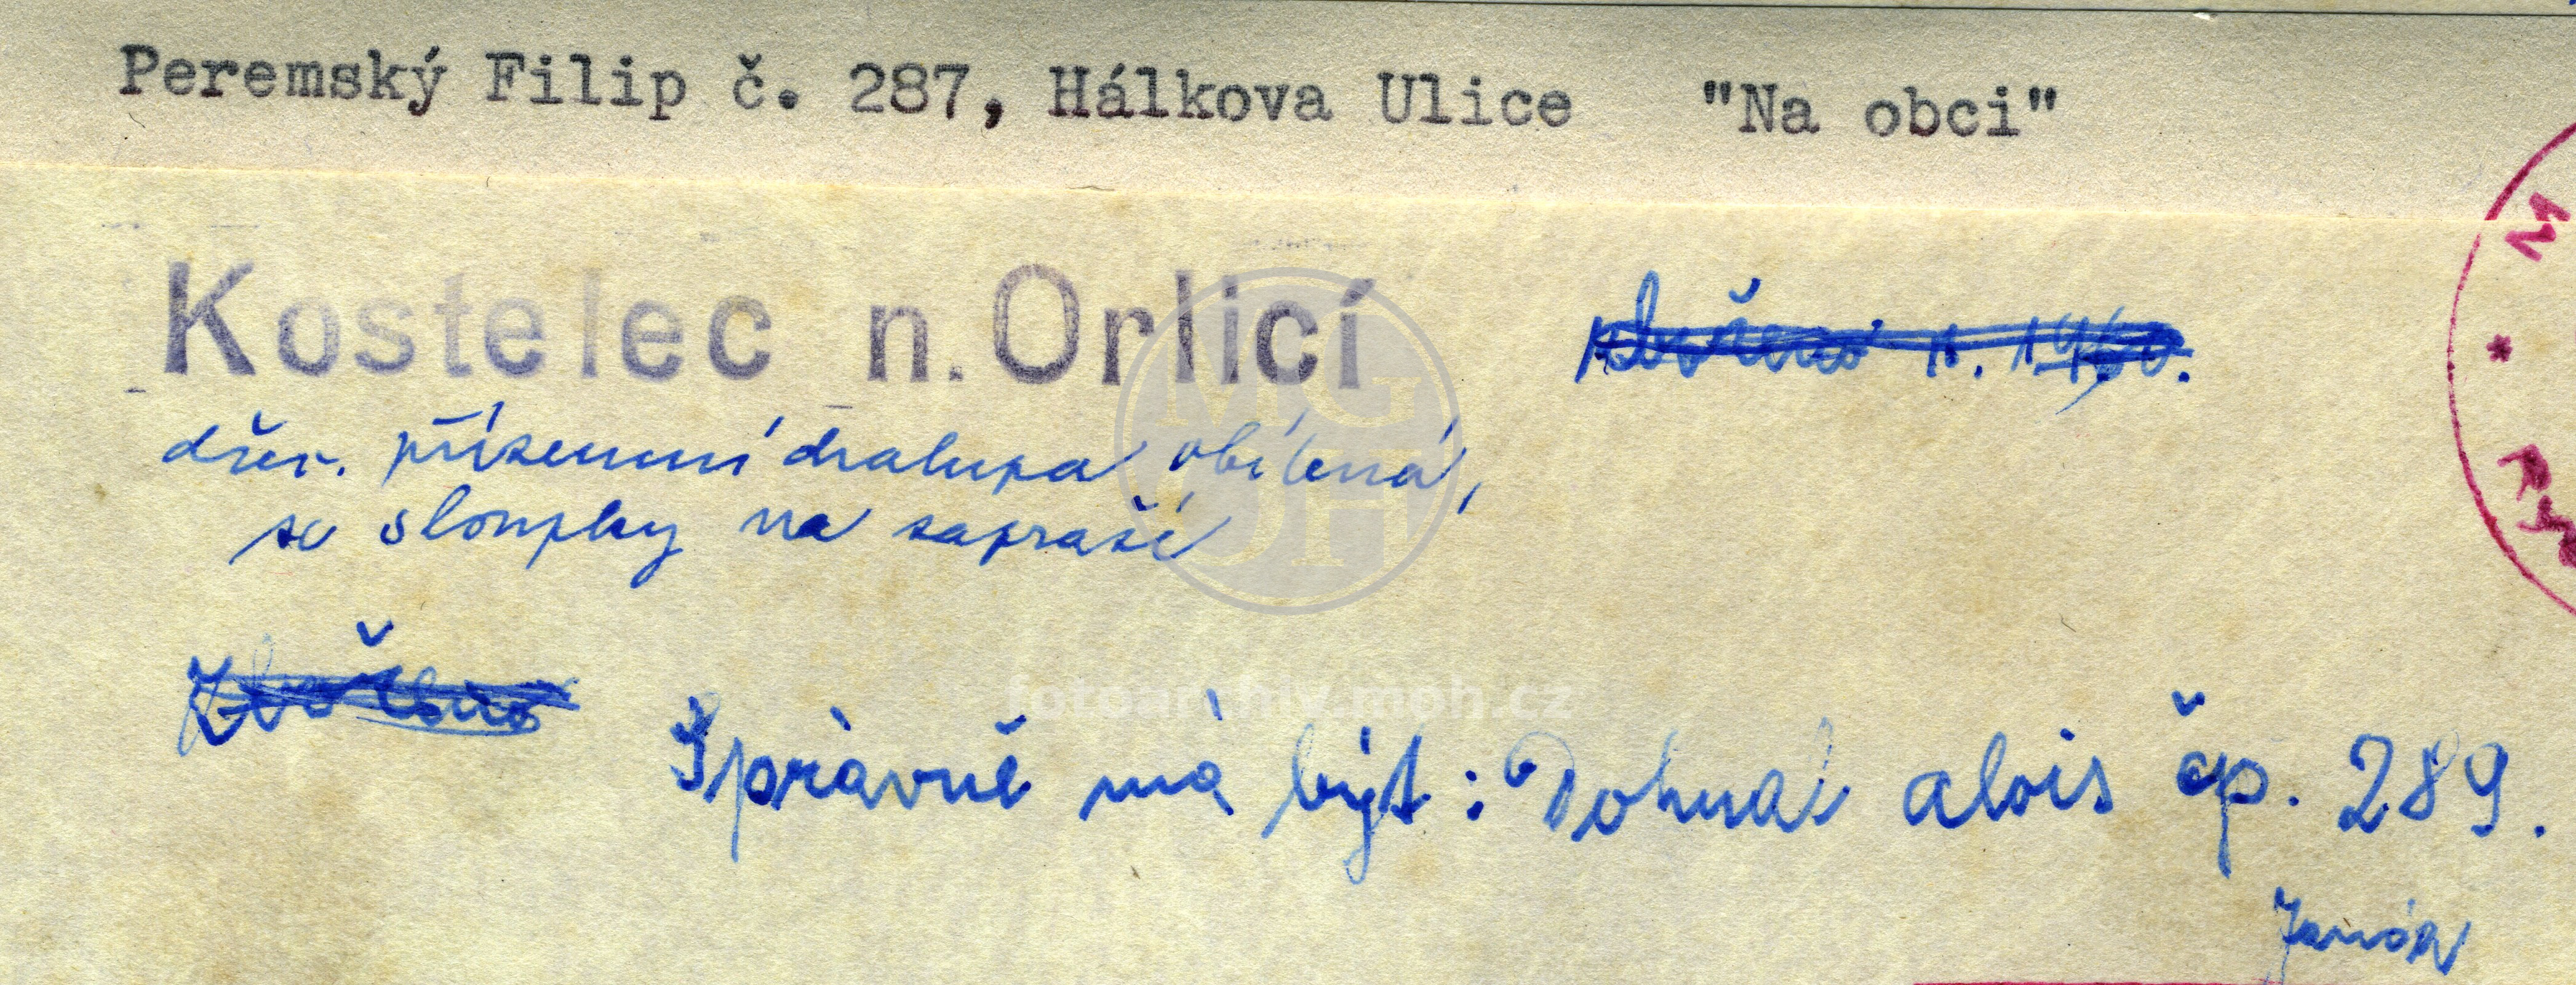 Peremský Filip č. 287, Hálkova Ulice "Na obci"
Kostelec n. Orlicí
dřev. přízemní chalupa obílená,
se sloupky na zápraží
Zbořeno
Správně má být: Dohnal Alois čp. 289.
MGOH
fotoarchiv.mph.cz